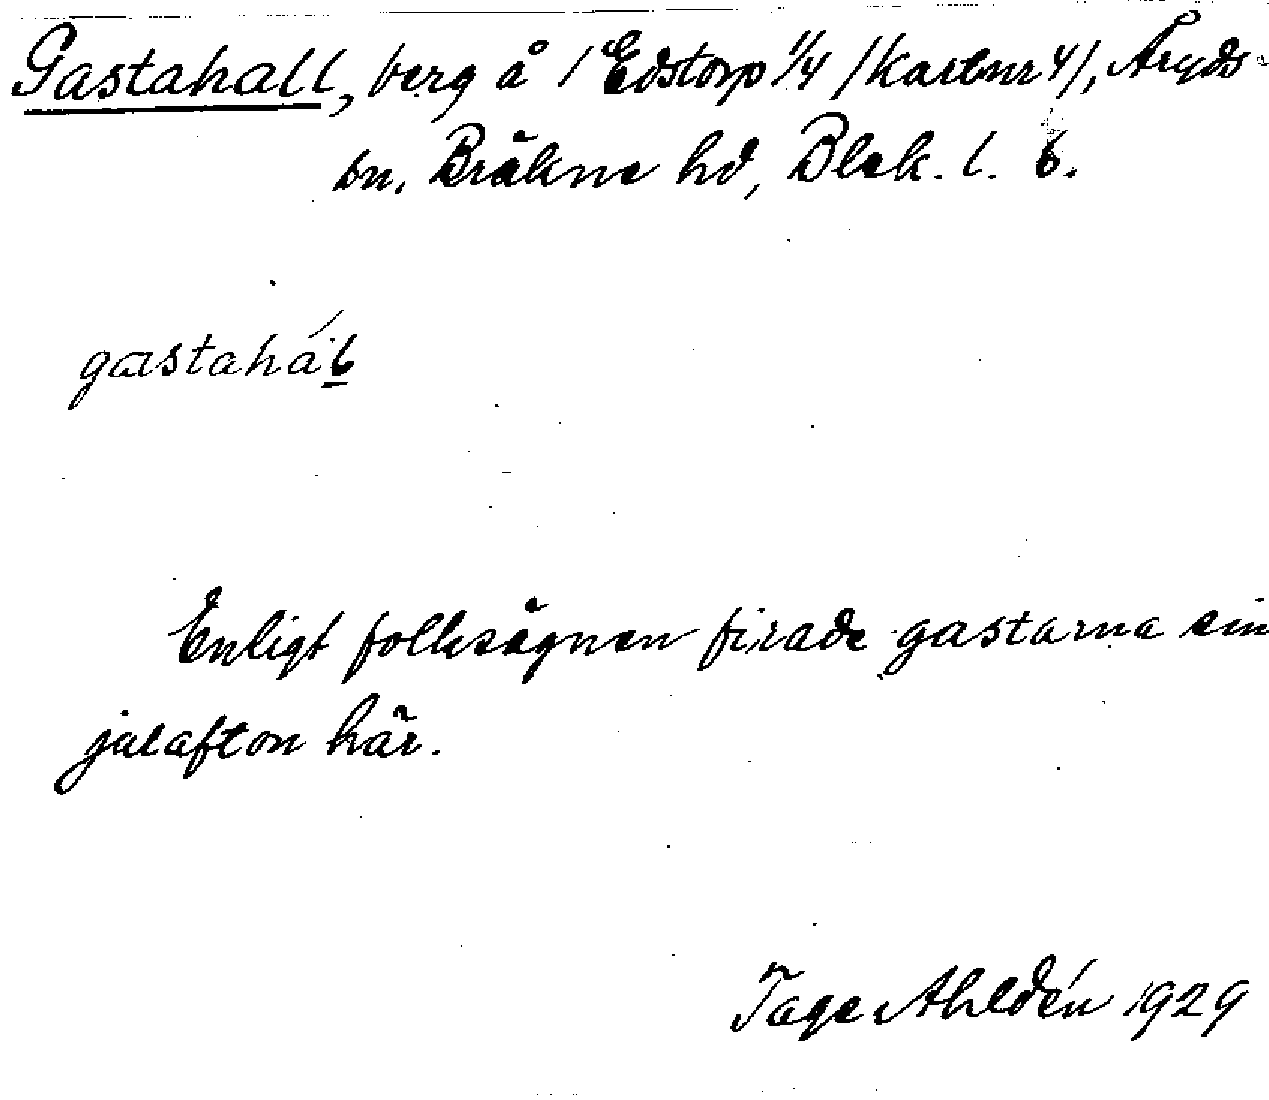 Gastahall, berg å 1 Edstorp 1/4 /Kartnr 4/, Åryds-
sn. Bräkne hd, Blek. l. 6.
gastahál
Enligt folksägnen firade gastarna sin
julafton här.
Tage Ahldén 1929